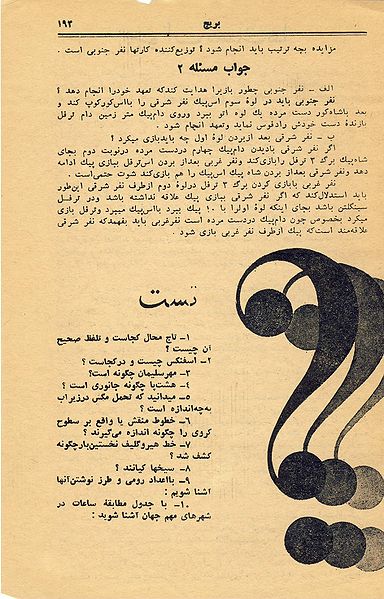 بریج ۱۹۳
مزایده بچه ترتیب باید انجام شود؟ توزیع‌کننده کارتها نفر جنوبی است .
جواب مسئله ۲
الف ـ نفر جنوبی چطور بازیرا هدایت کندکه تعهد خودرا انجام دهد ؟
نفر جنوبی باید در لوۀ سوم آس‌پیك نفر شرقی را باآس‌کورکوپ کند و
بعد باشاه‌کور دست مرده یك لوۀ آتو ببرد وروی دام‌پیك متر زمین دام ترفل
بازندۀ دست خودش رادفوس نماید وتعهد انجام شود .
ب ـ نفر شرقی بعد ازبردن لوۀ اول چه بایدبازی میکرد؟
اگر نفر شرقی بادیدن دام‌پیك چهارم دردست مرده درنوبت دوم بجای
شاه‌پیك برگ ۳ ترفل رابازی‌کند ونفر غربی بعداز بردن آس‌ترفل ببازی پیك ادامه
دهد ونفر شرقی بعداز بردن شاه پیك آس‌پیك را هم بازی‌کند شوت حتمی‌است .
نفر غربی بابازی کردن برگ ۳ ترفل درلوۀ دوم ازطرف نفر شرقی این‌طور
باید استدلال‌کند که اگر نفر شرقی ببازی پیك علاقه نداشته باشد ودر ترفل
سینگلتن باشد بجای اینکه لوۀ اولرا با ۱۰ پیك ببرد باآس‌پیك میبرد وترفل بازی
میکرد بخصوص چون دام‌پیك دردست مرده است نفرغربی باید بفهمدکه نفر شرقی
علاقه‌مند است‌که پیك ازطرف نفر غربی بازی شود .
تست
۱ـ تاج محال کجاست و تلفظ صحیح
آن چیست ؟
۲ـ اسفنکس چیست و درکجاست ؟
۳ـ مهرسلیمان چگونه است؟
۴ـ هشت‌پا چگونه جانوری است ؟
۵ـ میدانید که تحمل مگس درزیرآب
به‌چه‌اندازه است ؟
۶ـ خطوط منقش یا واقع بر سطوح
کروی را چگونه اندازه می‌گیرند ؟
۷ـ خط هیروگلیف نخستین‌بارچگونه
کشف شد ؟
۸ـ سیخها کیانند ؟
۹ـ بااعداد رومی و طرز نوشتن‌آنها
آشنا شویم :
۱۰ـ با جدول مطابقۀ ساعات در
شهرهای مهم جهان آشنا شوید :